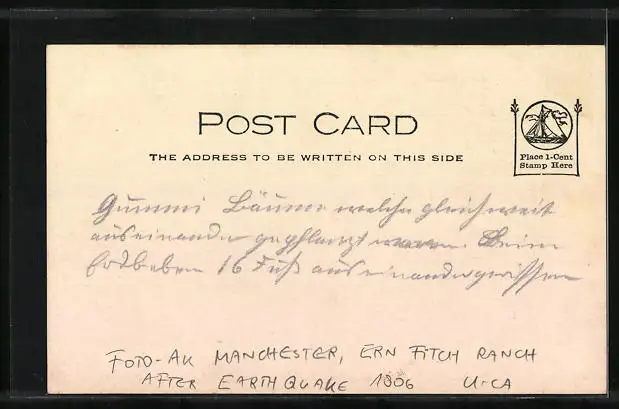 POST CARD
THE ADDRESS TO BE WRITTEN ON THIS SIDE
Place 1-Cent
Stamp Here
Gummi Bäume welche gleichweit
auseinander gepflanzt waren. Beim
Erdbeben 16 Fuß auseinandergerissen
FOTO-AK MANCHESTER, ERN FITCH RANCH
AFTER EARTHQUAKE 1906 U-CA